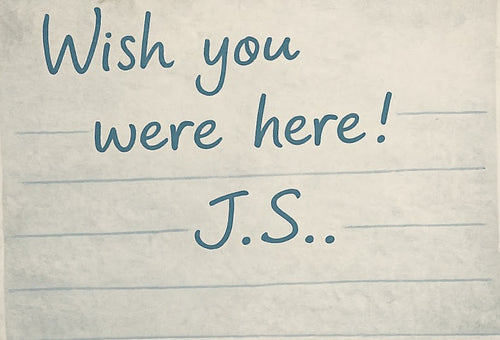 Wish you
were here!
J.S..